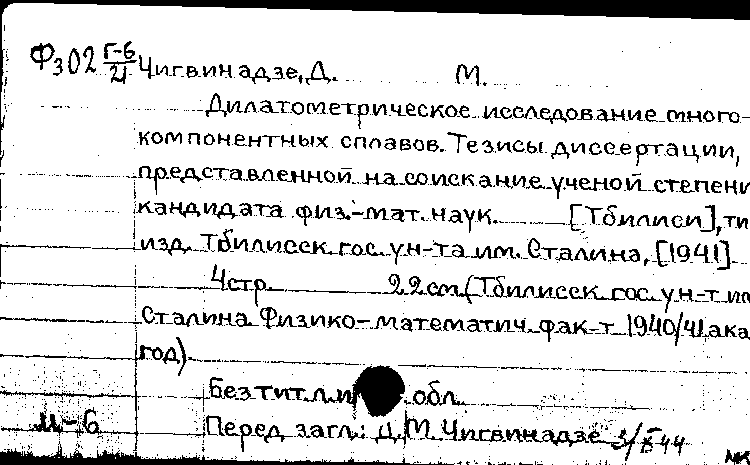 Фз02 Г-6/21 Чигвинадзе, Д. М.
Дилатометрическое исследование много-
компонентных сплавов. Тезисы диссертации,
представленной на соискание ученой степени
кандидата физ.-мат. наук. [Тбилиси], ти
изд. Тбилисск. гос. ун-та им. Сталина, [1941]
4 стр. 22 см. (Тбилисск. гос. ун-т им
Сталина. Физико-математич. фак-т 1940/41 ака
год).
Без тит. л. и обл.
м-6 Перед загл.: Д. М. Чигвинадзе 3/X 44